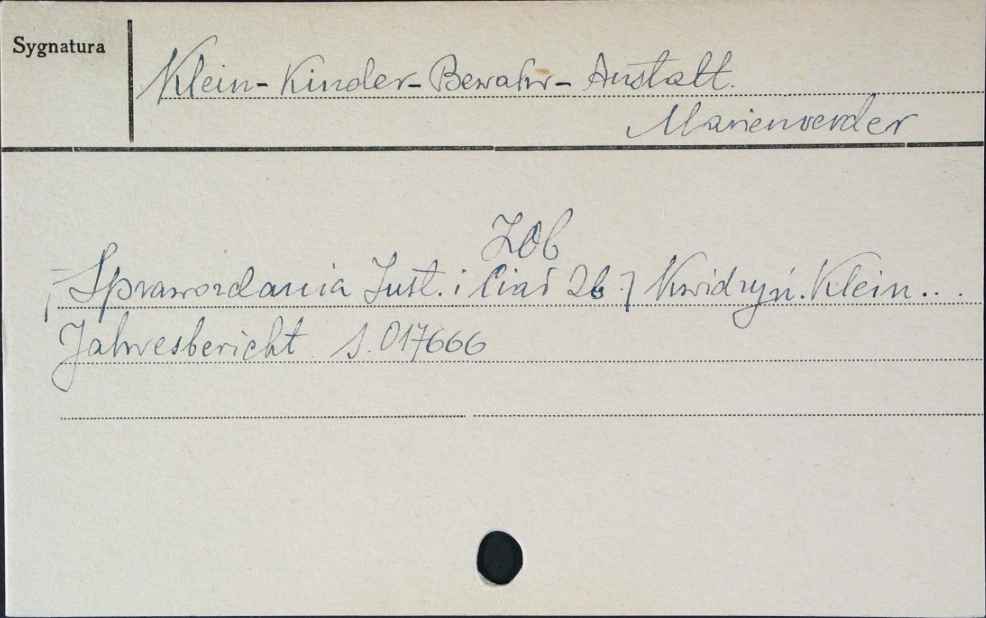 Sygnatura
Klein-Kinder-Bewahr-Anstalt.
Marienwerder
ZOb
Sprawozdania Inst. i Ciał 26.] Kwidzyń. Klein...
Jahresbericht S. 017666